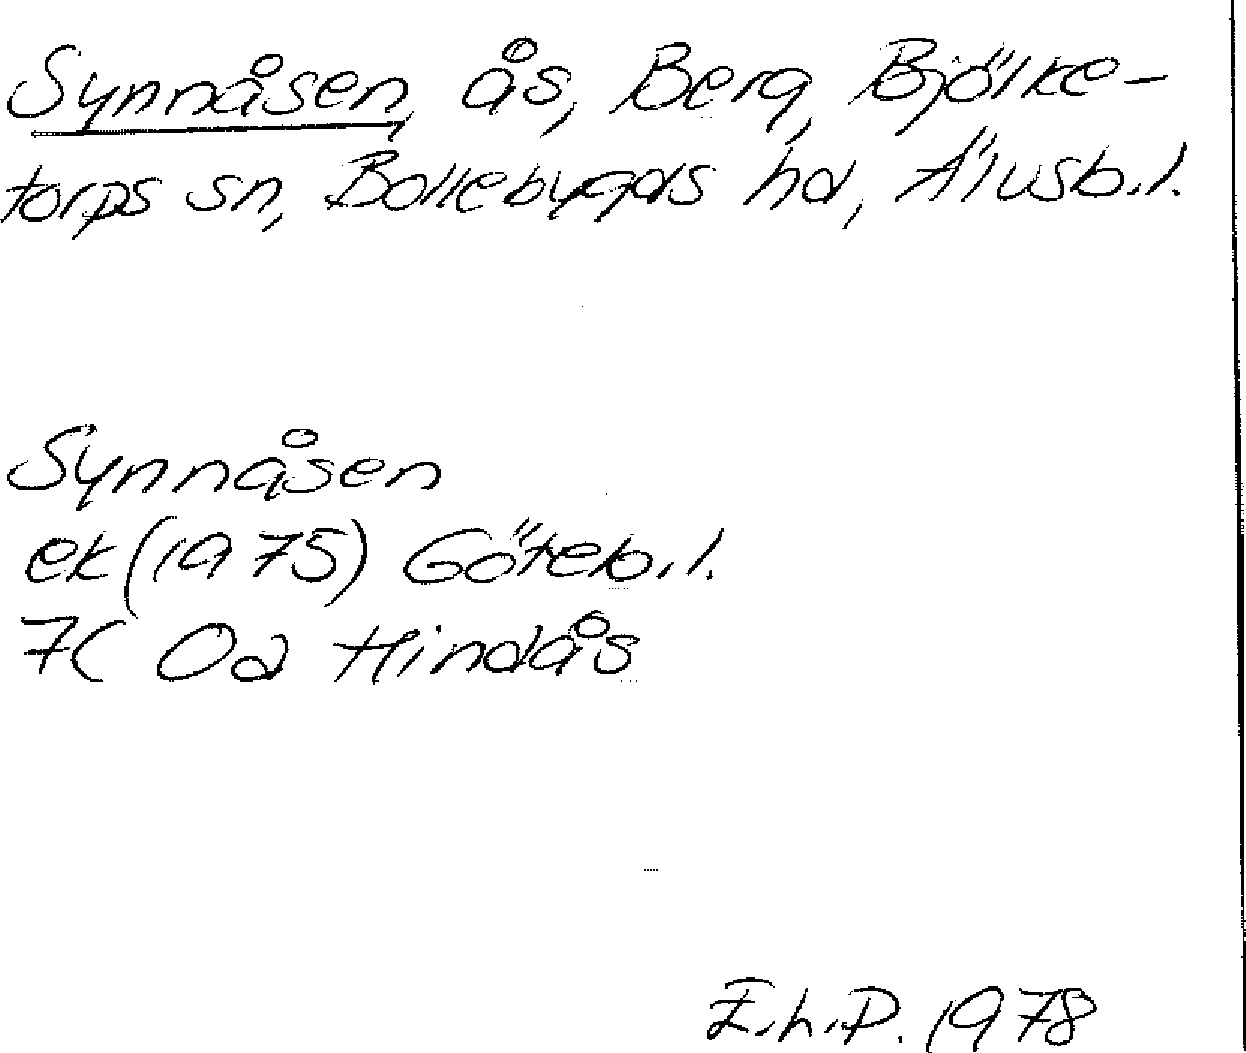 Synnåsen, ås, Berg, Björke-
torps sn, Bollebygds hd, Älvsb.l.
Synnåsen
ek (1975) Göteb.l.
7C 0a Hindås
E.h.P. 1978